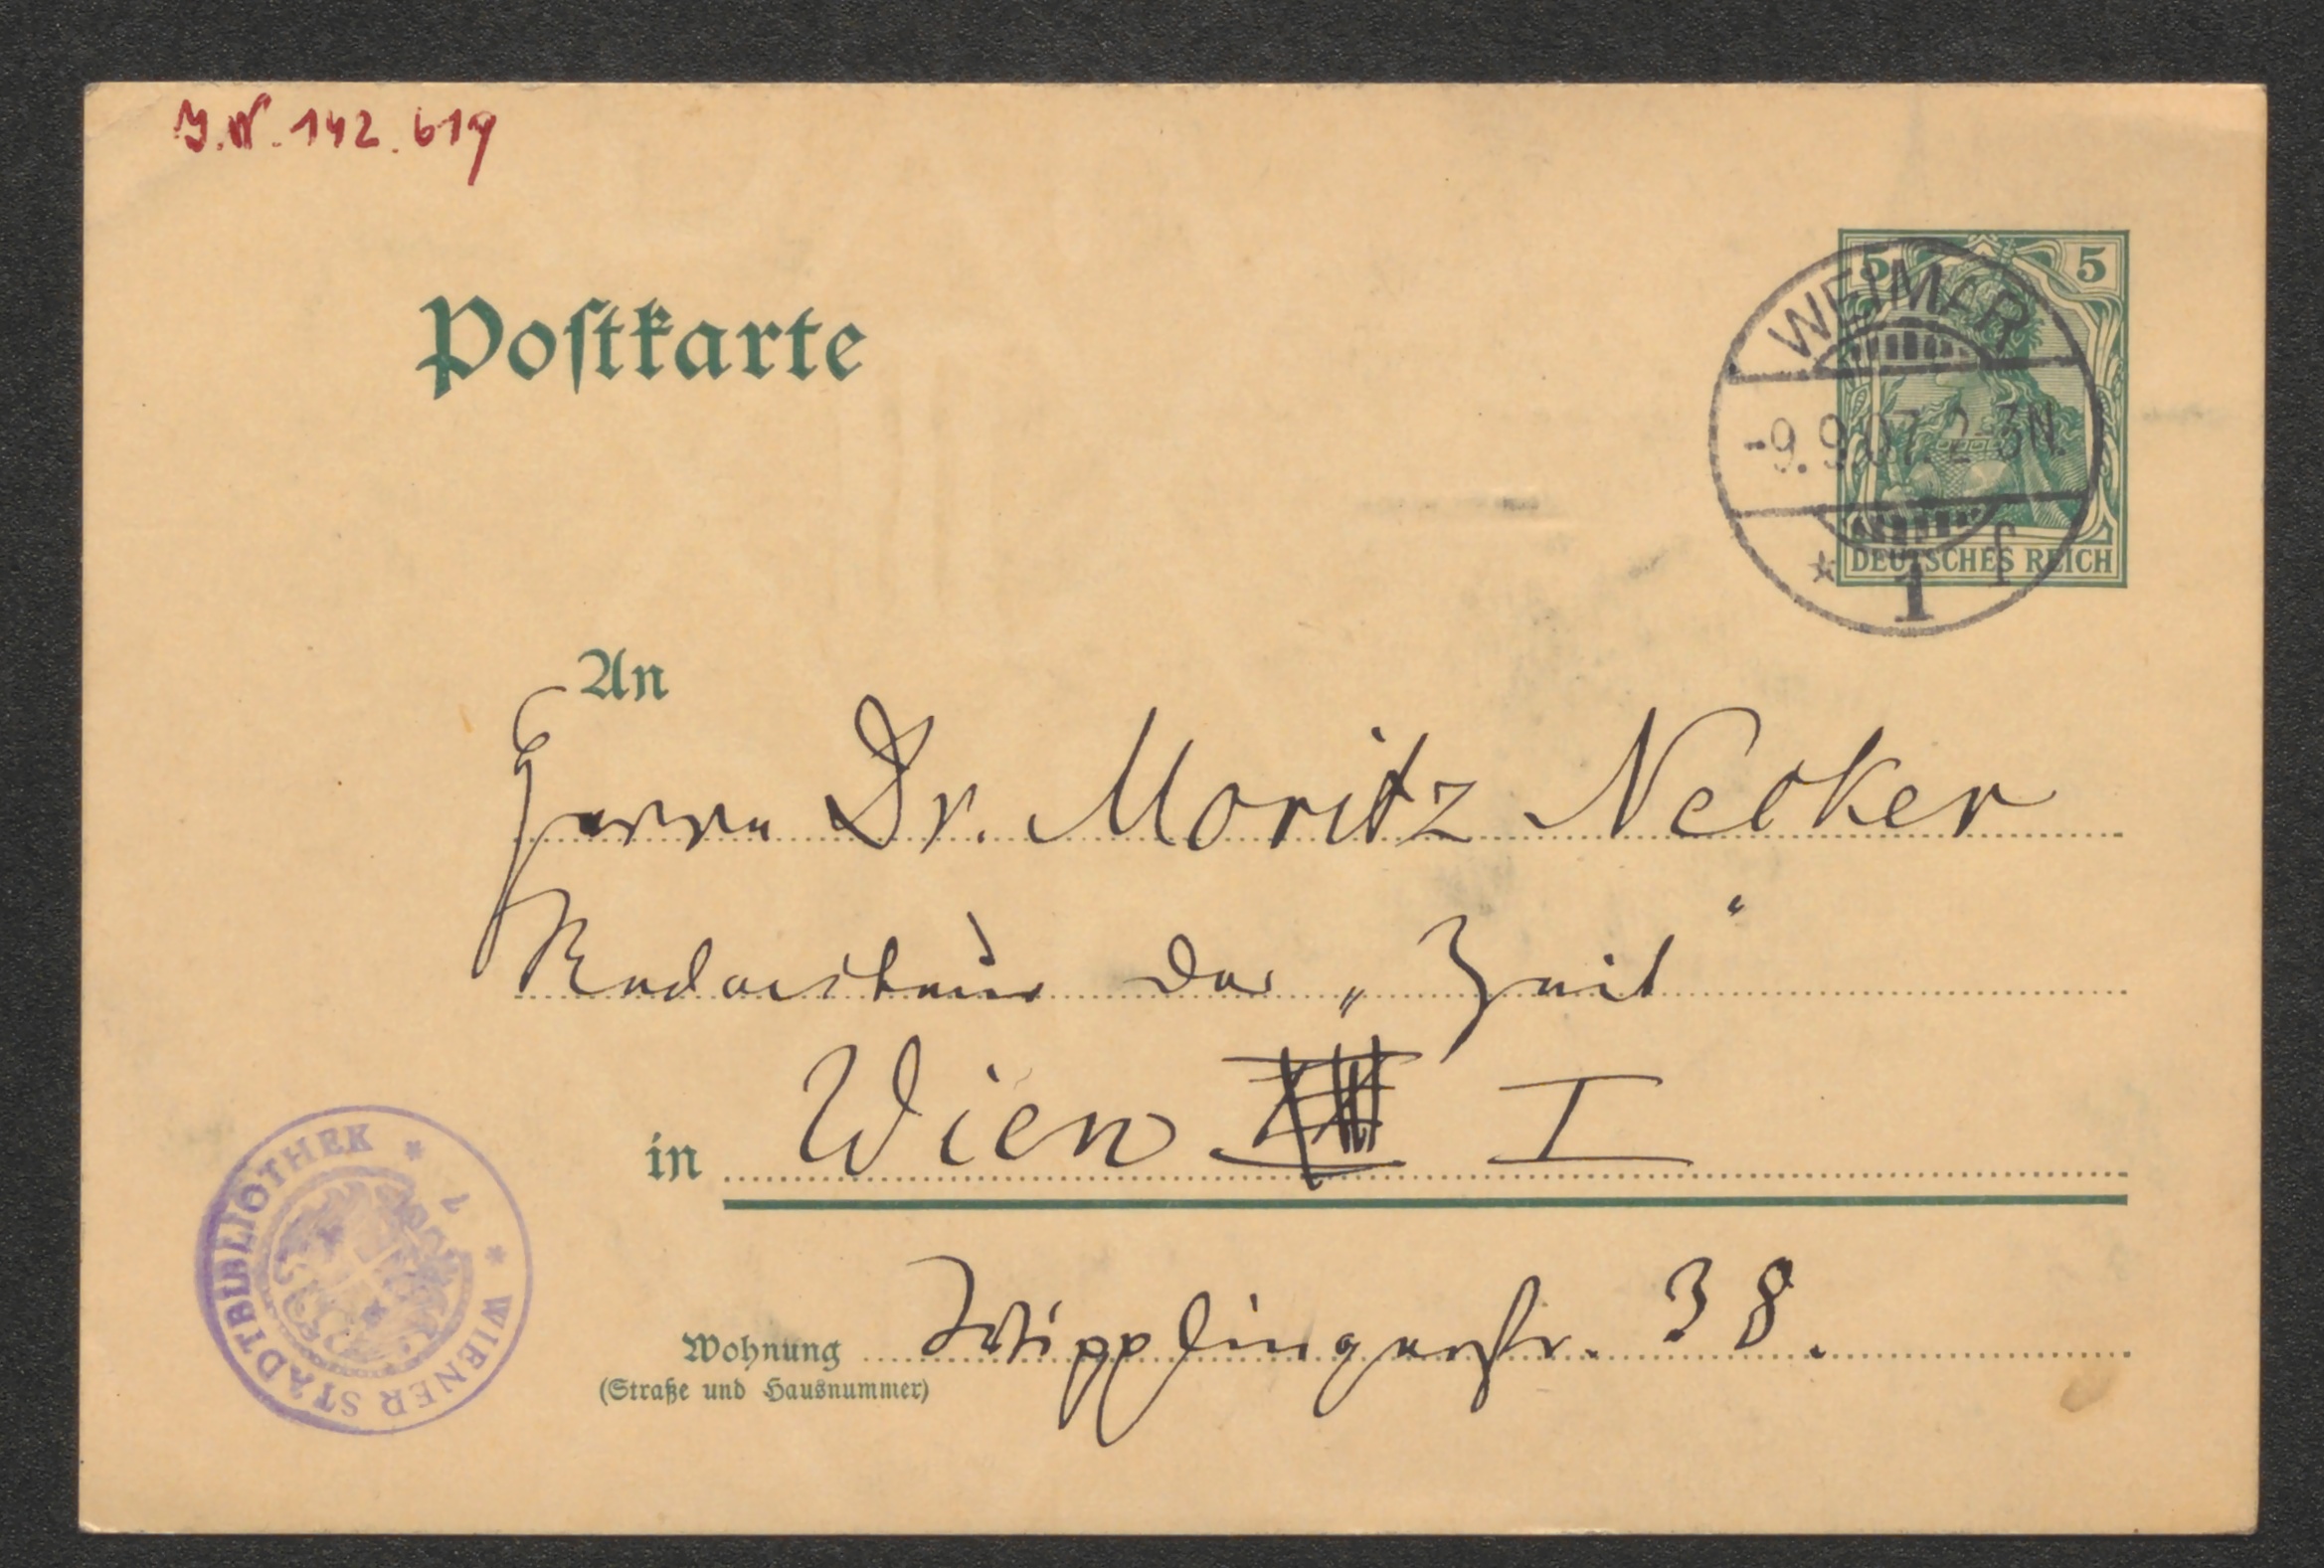 J.N. 142.619
Postkarte
5 5
WEIMAR
-9.9.07. 2-3N.
* 1 f
DEUTSCHES REICH
An
Herrn Dr. Moritz Necker
Redacteur der „Zeit“
in Wien I
Wohnung Wipplingerstr. 38.
(Straße und Hausnummer)
* WIENER STADTBIBLIOTHEK *